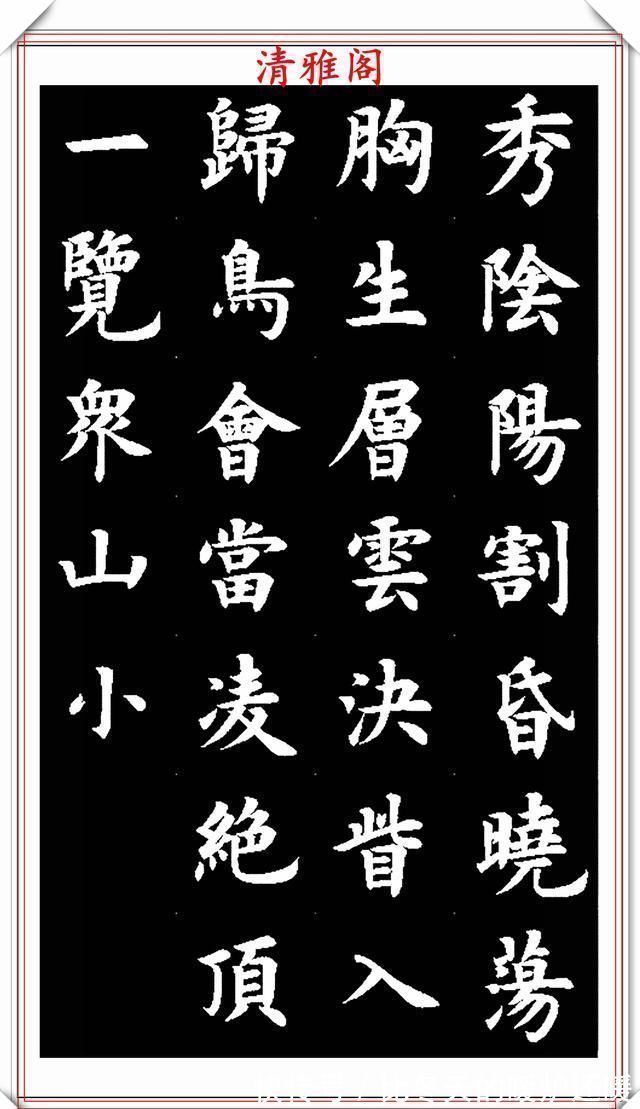 清雅阁
秀陰陽割昏曉蕩
胸生層雲決眥入
歸鳥會當凌絕頂
一覽眾山小